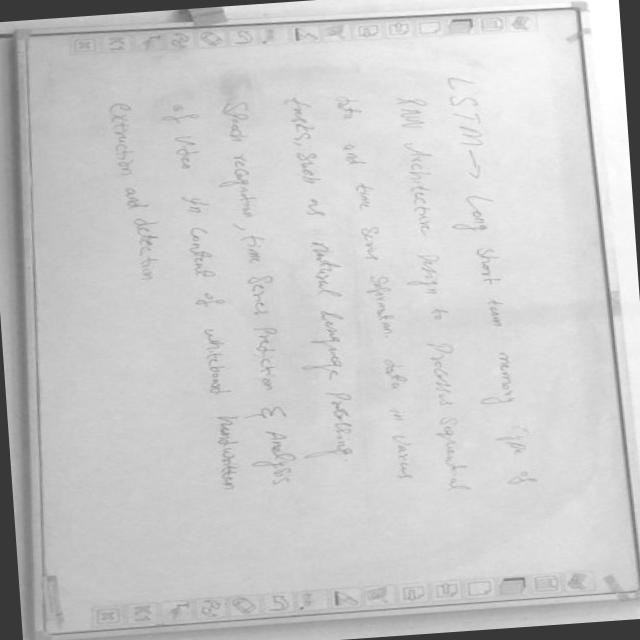 LSTM → Long short term memory Type of
RNN Architecture Design to Processed Sequential
data and time Series Information. able in various
tasks, Such as natural language Processing.
Speech recognition, time Series Prediction & Analysis
of Video in Context of whiteboard handwritten
Extraction and detection